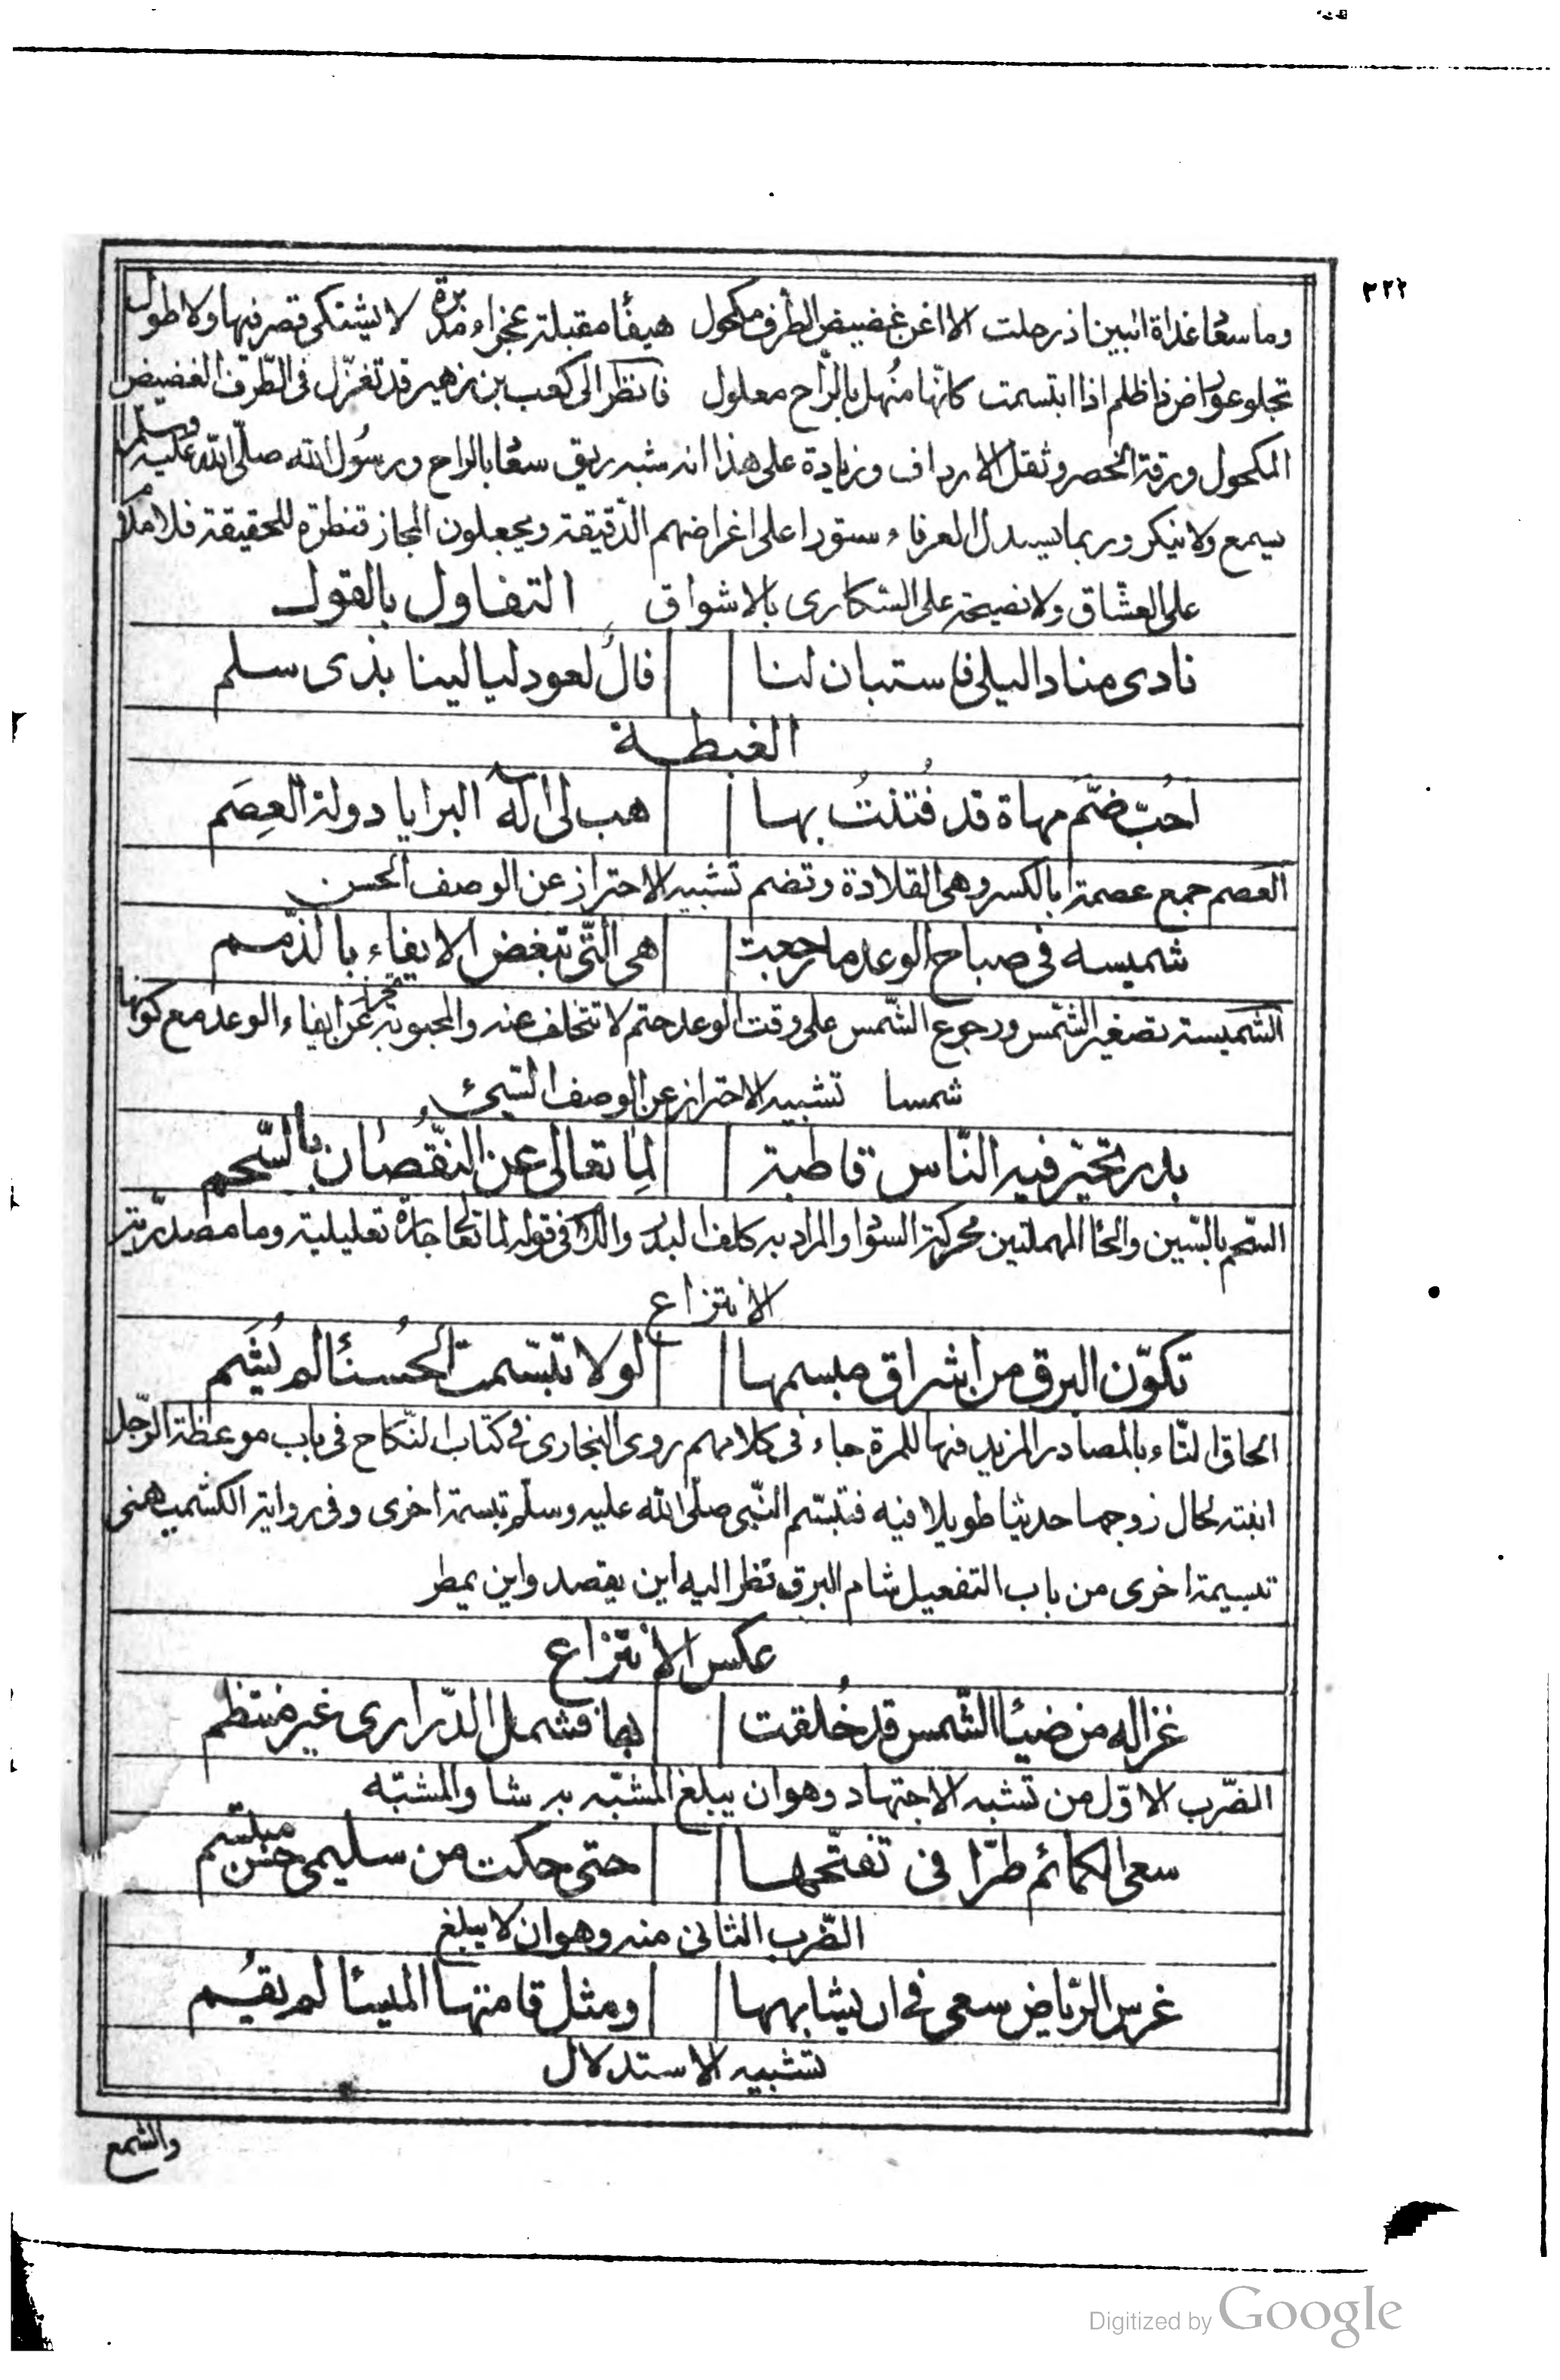 ٢٢٢
وما سعاً غداة البين اذ رحلت الا اغن غضيض الطرف مكحول هيفاً مقبلة عجزاء مدبرة لا يشتكى قصر فيها ولا طول
تجلو عوارض ذا ظلم اذا ابتسمت كانّها منُهل بالرّاح معلول فانظر الى كعب بن زهير قد تغزّل فى الطّرف الغضيض
المكحول ورقة الخصر وثقل الارداف وزيادة على هذا انه شبه ريق سعاً بالراح ورسُول الله صلّى الله عليه وسلم
يسمع ولا ينكر وربما يسدل العرفاء ستورا على اغراضهم الدّقيقة ويجعلون المجاز قنطرة للحقيقة فلا ملام
على العشّاق ولا نصيحة على السّكارى بالاشواق التفاول بالقول
نادى مناد لليلى فاستبان لنا فالٌ لعود ليالينا بذى سلم
الغبطة
احُبّ ضمّ مهاة قد فُتنتُ بها هب لى اله البرايا دولة العِصَم
العصم جمع عصمة بالكسر وهى القلادة وتضم تشبيه الاحتراز عن الوصف الحسن
شميسه فى صباح الوعد ما رجعت هى الّتى تبغض الايفاء بالذّمم
الشميسة تصغير الشّمس ورجوع الشّمس على وقت الوعد حتم لا تتخلف عنه والمحبوبة تحترز عن ايفاء الوعد مع كونها
شمسا تشبيه الاحتراز عن الوصف السّيئ
بدر تحيّر فيه النّاس قاطبة لِما تعالى عن النّقُصان بالسّحم
السّحم بالسّين والحا المهملتين محركة السواد المراد به كلف البدر واللام فى قوله لما تعالى جارة تعليلية وما مصدريّة
الانتزاع
تكوّن البرق من اشراق مبسمها لولا تبسّمت الحُسنا لم يُشَم
الحاق التّاء بالمصادر المزيد فيها للمرة جاء فى كلامهم روى البخارى فى كتاب النّكاح فى باب موعظة الرّجل
ابنته لحال زوجها حديثا طويلا فيه فتبسّم النّبى صلّى الله عليه وسلّم تبسمة اخرى وفى رواية الكشميهنى
تبسيمة اخرى من باب التفعيل شام البرق نظر اليه اين يقصد واين يمطر
عكس الانتزاع
غزاله من ضيئا الشّمس قد خُلقت بها فشمل الدّرارى غير منتظم
الضّرب الاوّل من تشبه الاجتهاد وهو ان يبلغ المشبّه به شا والمشبّه
سعى الكمائم طرّا فى تفتّحها حتى حكت من سليمى حُسن مبتسم
الضّرب الثانى منه وهو ان لا يبلغ
غرس الرّياض سعى فى ان يشابهها ومثل قامتها الميسا لم يقُم
تشبيه الاستدلال
والشمع
Digitized by Google